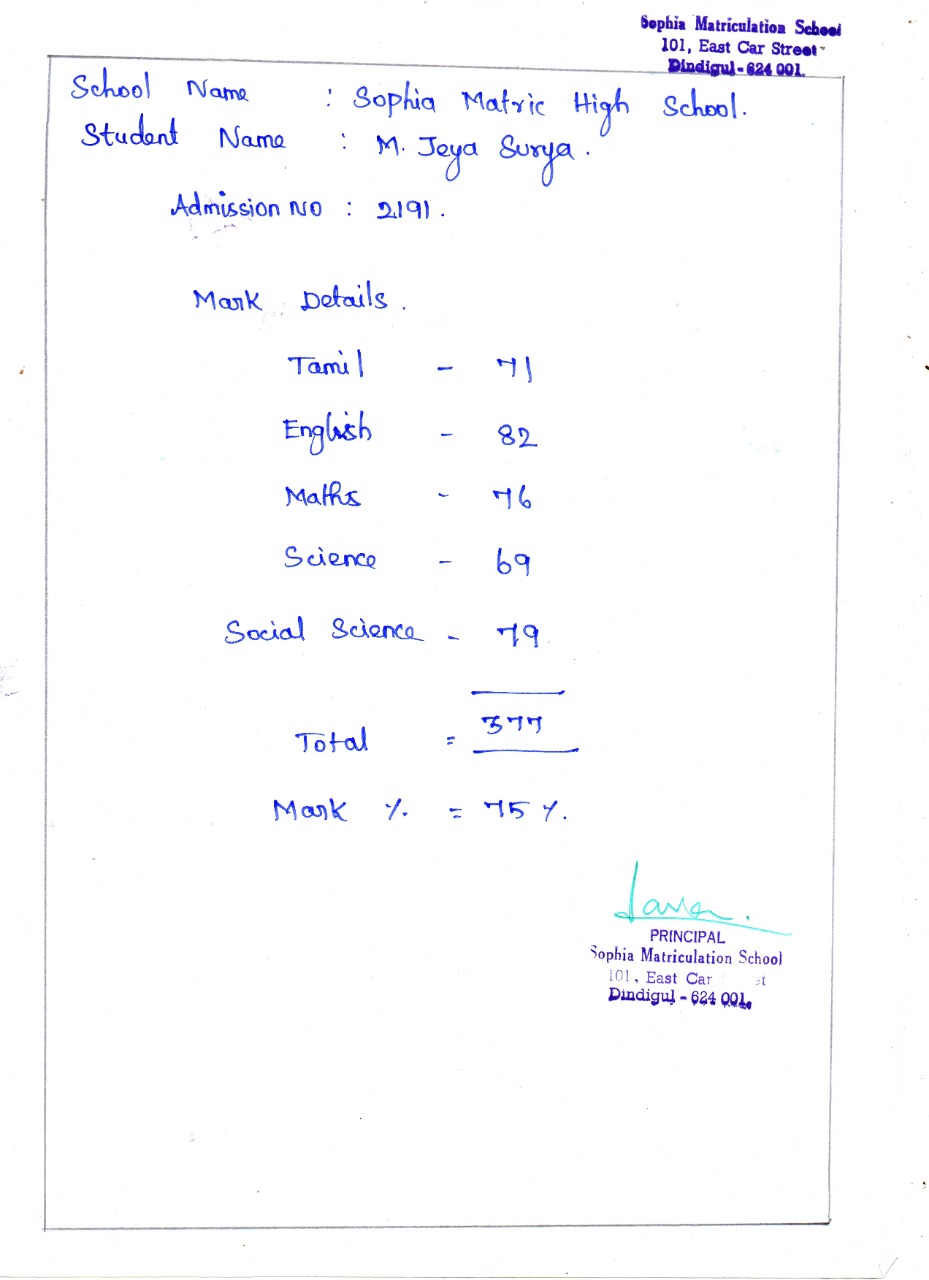 Sophia Matriculation School
101, East Car Street
Dindigul - 624 001.
School Name : Sophia Matric High School.
Student Name : M. Jeya Surya.
Admission NO : 2191.
Mark Details.
Tamil - 71
English - 82
Maths - 76
Science - 69
Social Science - 79
Total = 377
Mark % = 75 %.
PRINCIPAL
Sophia Matriculation School
101, East Car
Dindigul - 624 001.